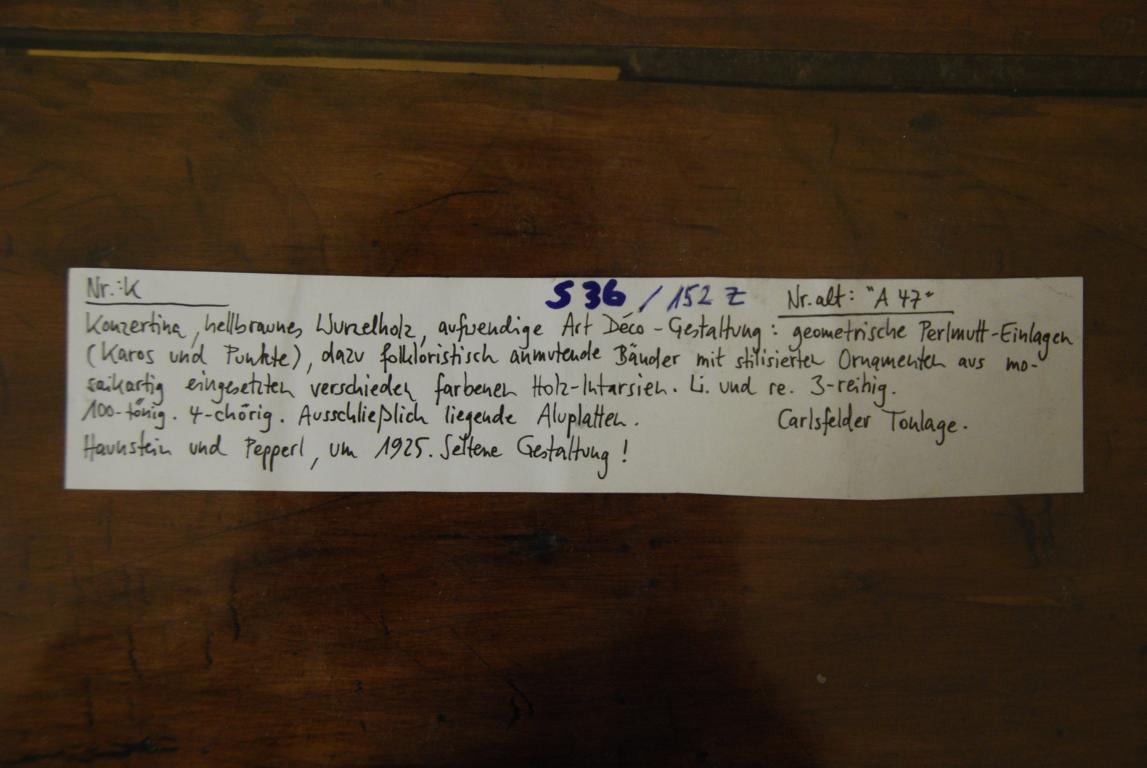 Nr.: K S 36 / 152 Z Nr. alt: "A 47"
Konzertina, hellbraunes Wurzelholz, aufwendige Art Déco-Gestaltung: geometrische Perlmutt-Einlagen
(Karos und Punkte), dazu folkloristisch anmutende Bänder mit stilisierten Ornamenten aus mo-
saikartig eingesetzten verschieden farbenen Holz-Intarsien. Li. und re. 3-reihig.
100-tönig. 4-chörig. Ausschließlich liegende Aluplatten. Carlsfelder Tonlage.
Haunstein und Pepperl, um 1925. Seltene Gestaltung!